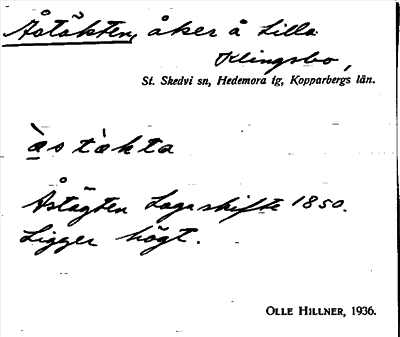 Åstäkten, åker å Lilla
Klingsbo,
St. Skedvi sn, Hedemora tg, Kopparbergs län.
àstàkta
Åstägten Laga skifte 1850.
Ligger högt.
OLLE HILLNER, 1936.